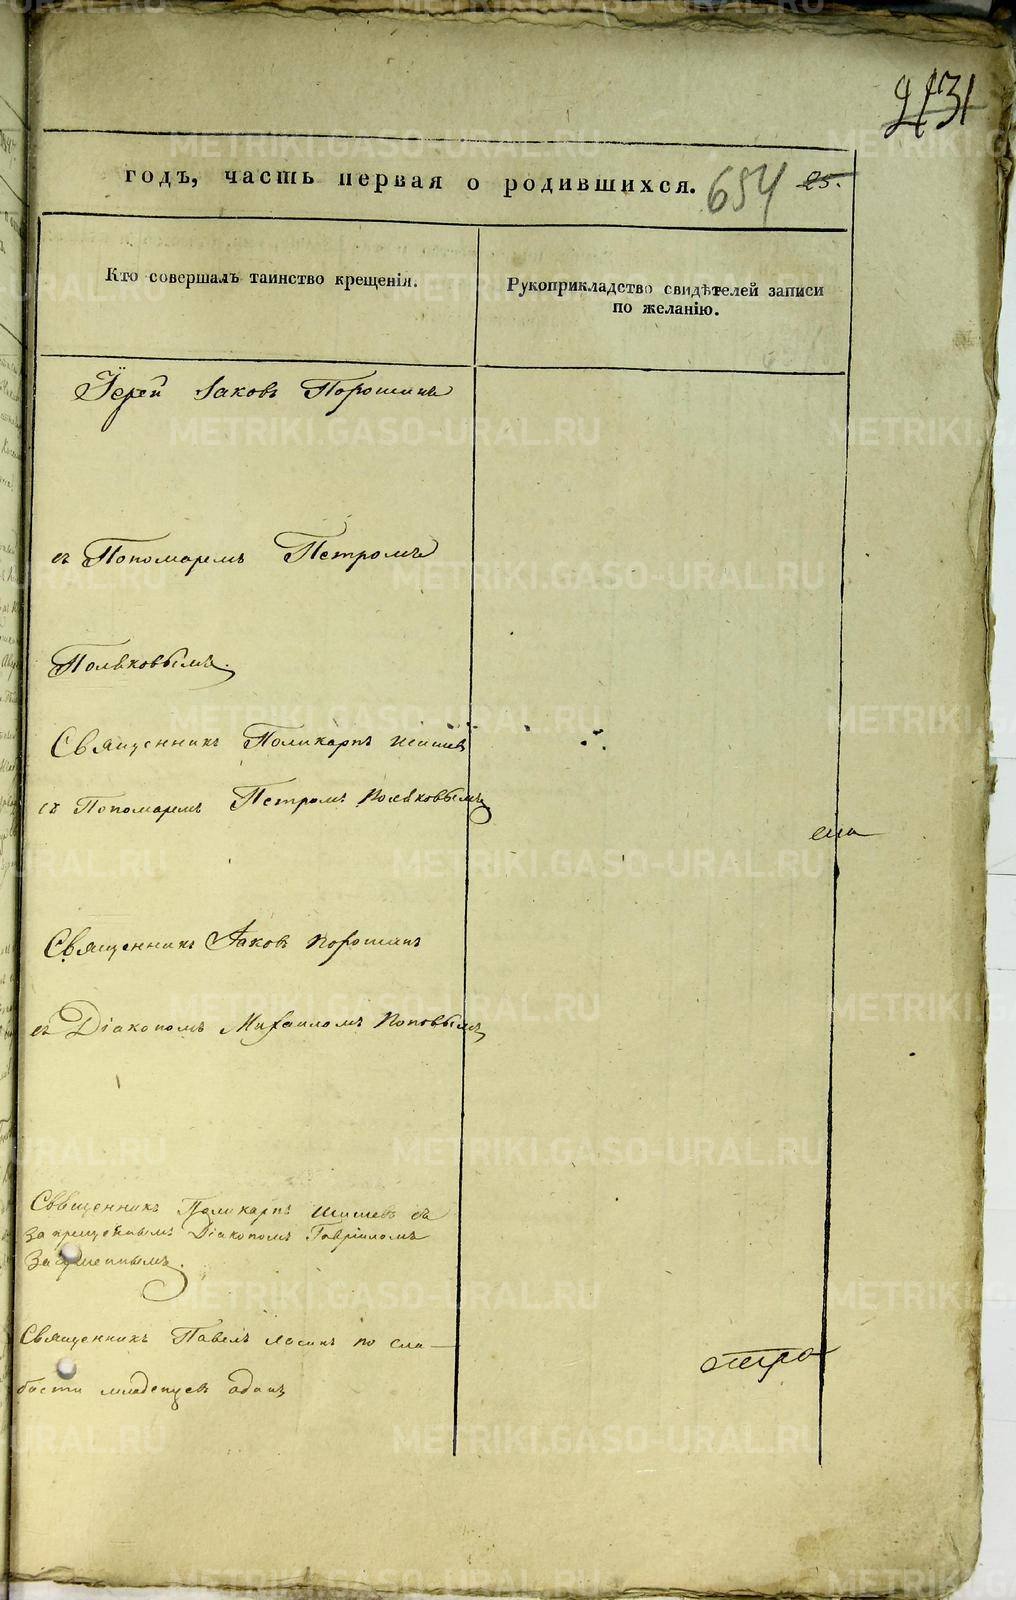 2131
годъ, часть первая о родившихся. 654 25.
Кто совершалъ таинство крещенія.
Рукоприкладство свидѣтелей записи
по желанію.
Іерей Іаковъ Порошинъ
съ Пономаремъ Петромъ
Полѣковымъ.
Священникъ Поликарпъ Шишев
съ Пономаремъ Петромъ Полѣковымъ
Священникъ Іаковъ Порошинъ
съ Діакономъ Михаиломъ Поповымъ
Священникъ Поликарпъ Шишевъ съ
Діакономъ Гавріиломъ
Священникъ Павелъ по сла-
бости младенцев одинъ
METRIKI.GASO-URAL.RU